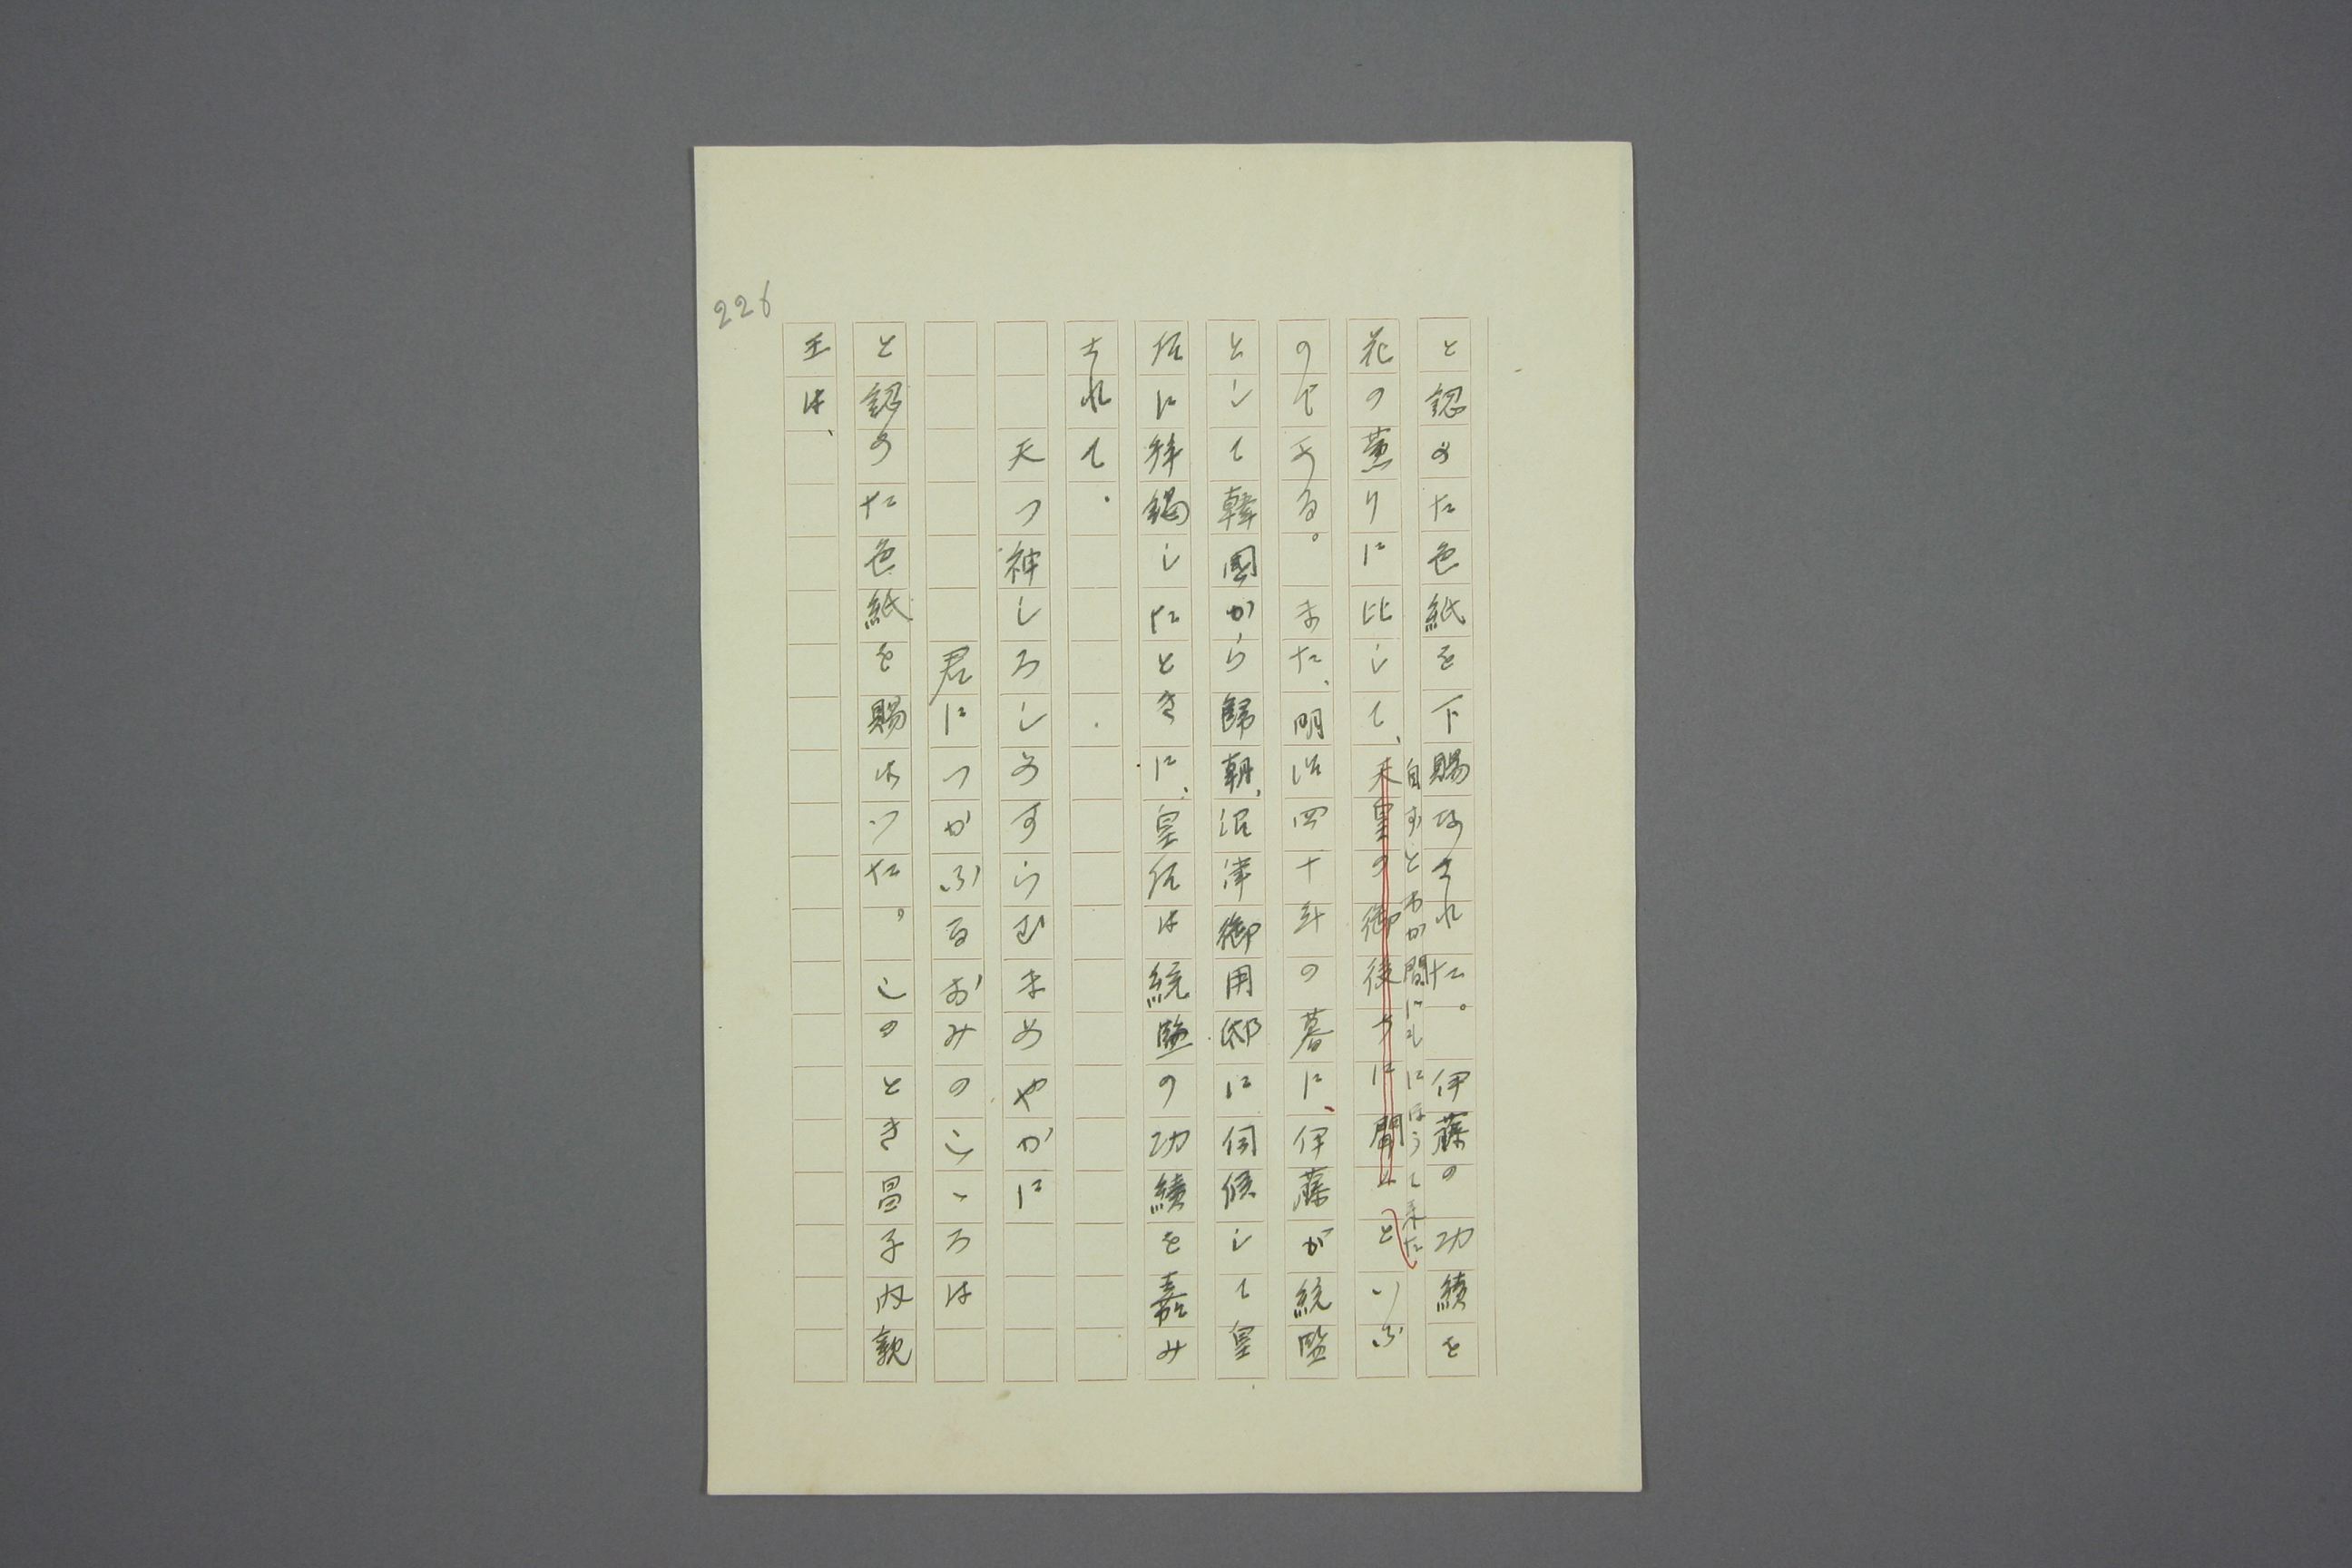 と認めた色紙を下賜なされた。　伊藤の功績を
自すとわか間にもにほうて来た
花の薫りに比して、天皇の御後方に聞と といふ
のである。　また、明治四十年の暮に、伊藤が統監
として韓國から歸朝、沼津御用邸に伺候して皇
后に拝謁したときに、皇后は統監の功績を嘉み
されて、
天つ神しろしめすらむまめやかに
君につかふるおみのこゝろは
と認めた色紙を賜はつた。このとき昌子内親
王は、
226